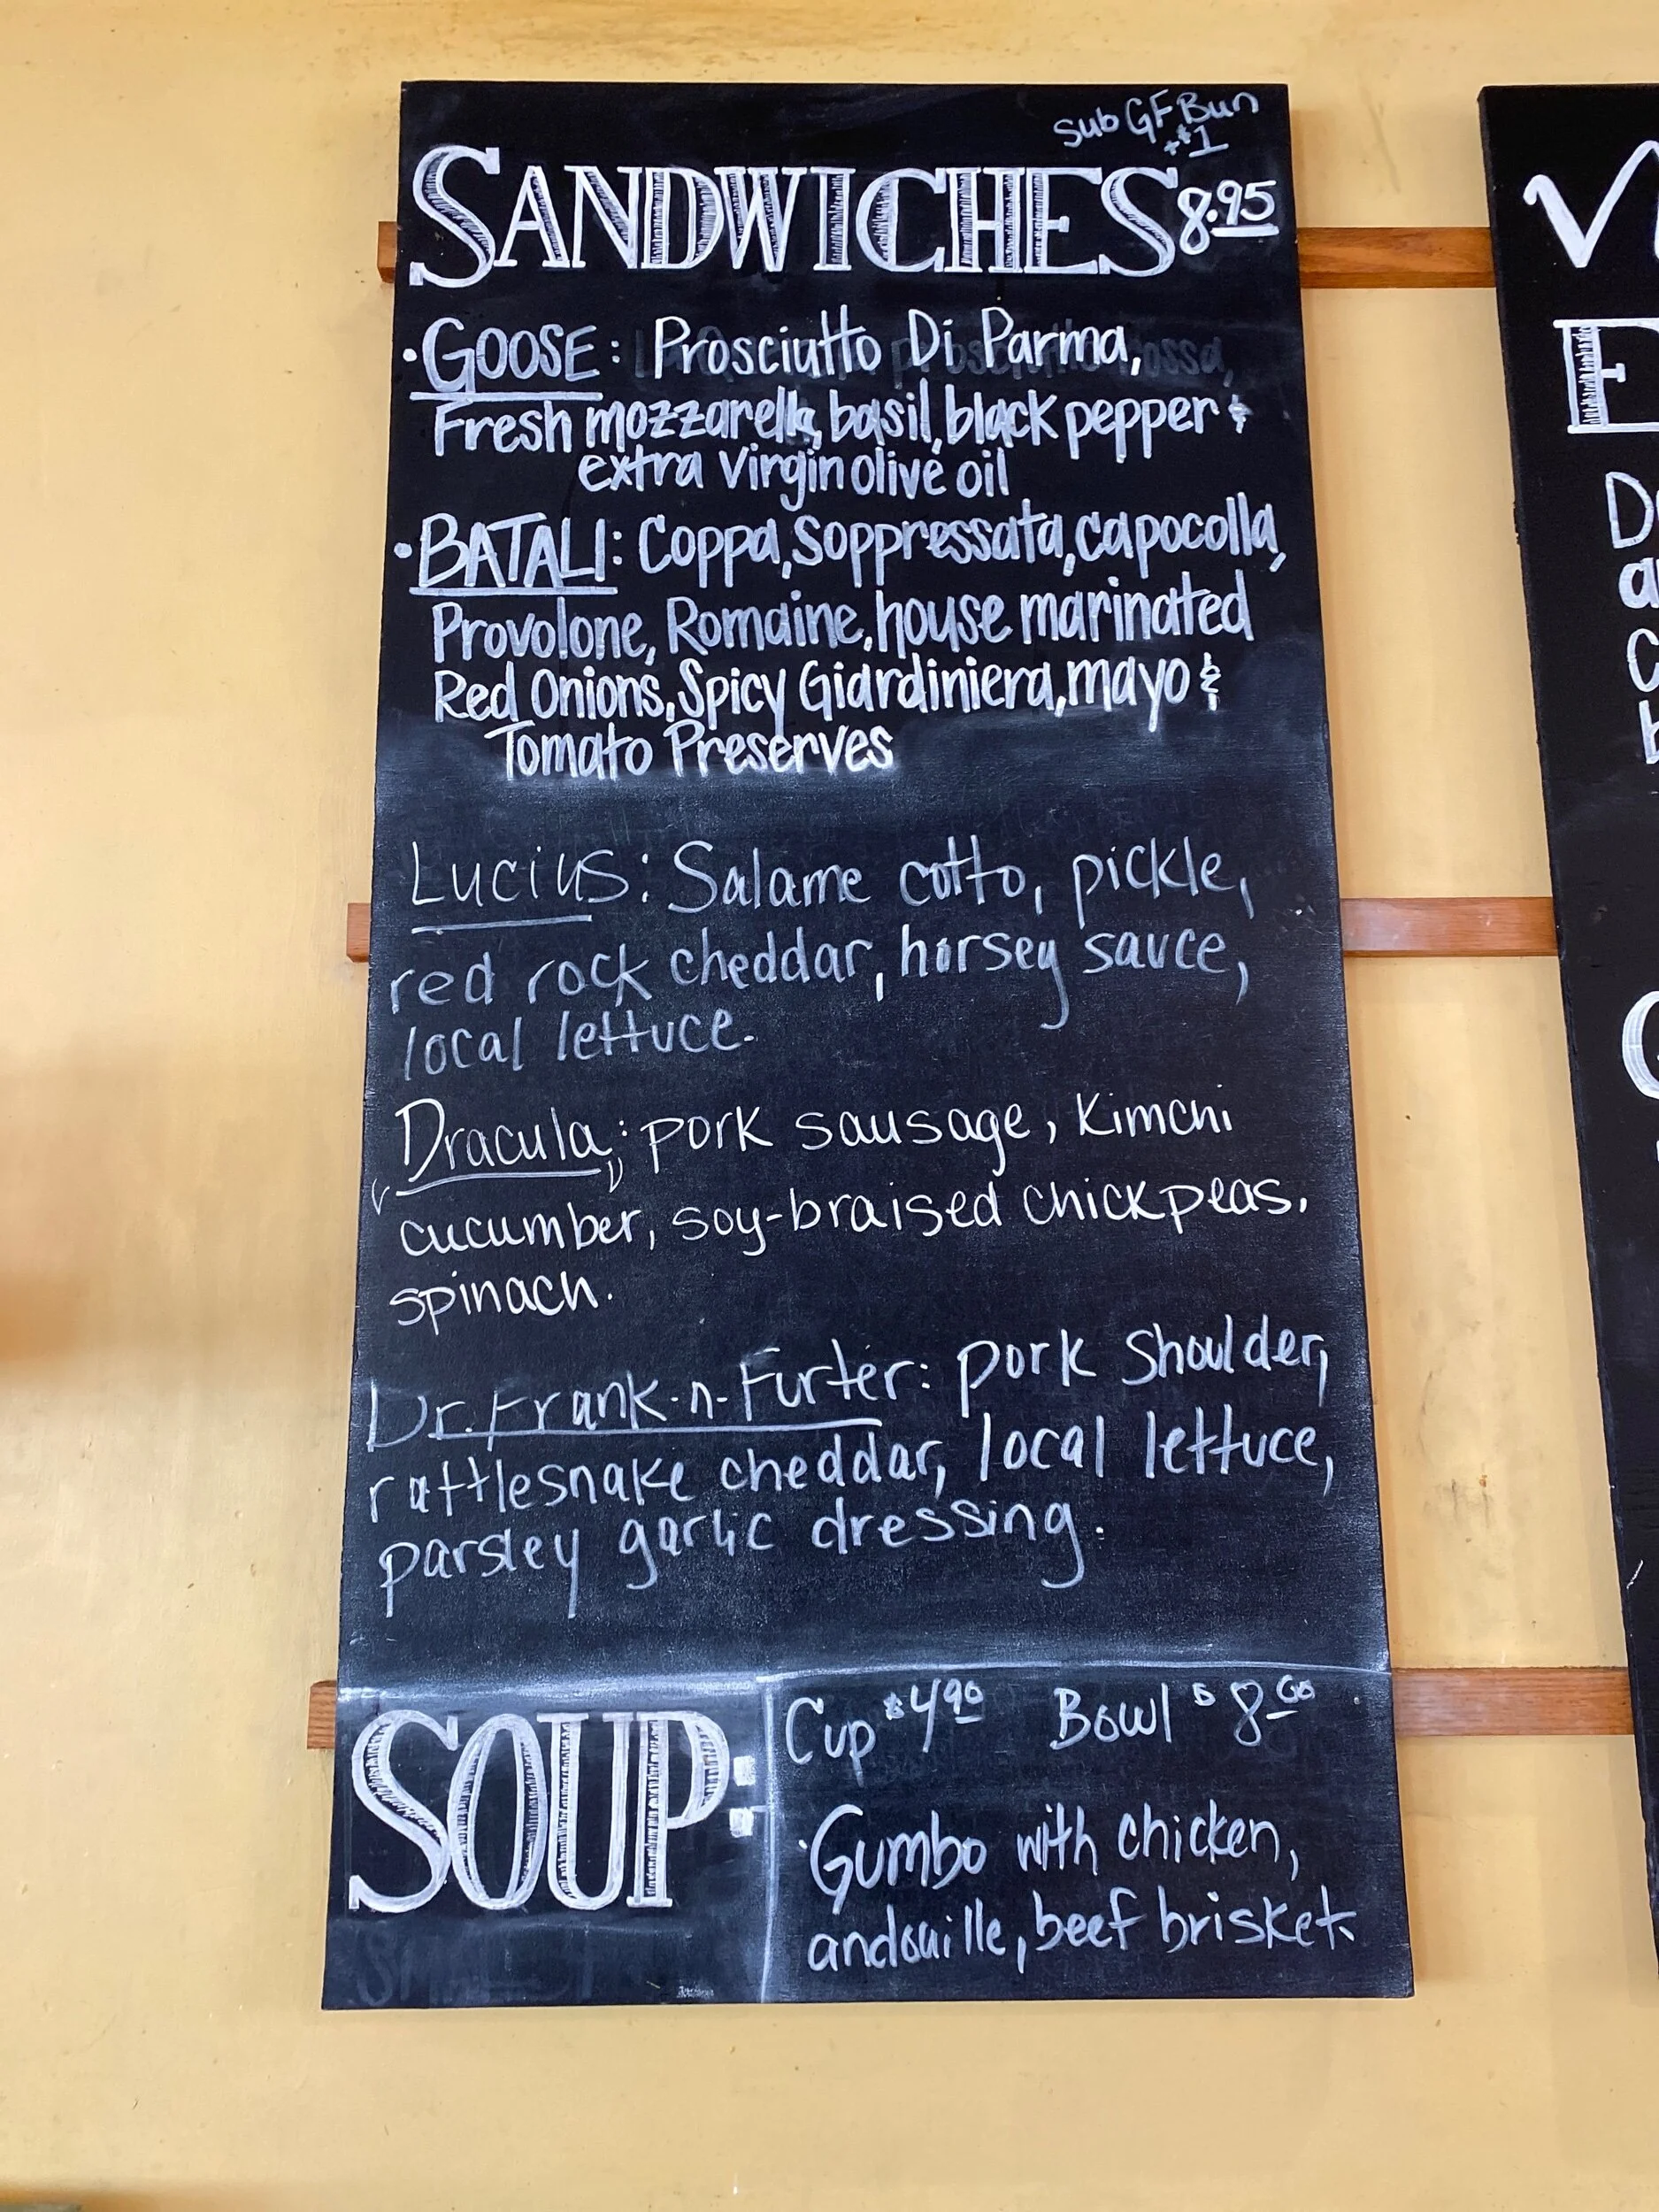 Sub GF Bun
+$1
SANDWICHES 8.95
·GOOSE: Prosciutto Di Parma,
Fresh mozzarella, basil, black pepper &
extra virgin olive oil
·BATALI: Coppa, Soppressata, capocolla,
Provolone, Romaine, house marinated
Red Onions, Spicy Giardiniera, mayo &
Tomato Preserves
Lucius: Salame cotto, pickle,
red rock cheddar, horsey sauce,
local lettuce.
Dracula: pork sausage, Kimchi
cucumber, soy-braised chickpeas,
spinach.
Dr. Frank-n-Furter: pork shoulder,
rattlesnake cheddar, local lettuce,
parsley garlic dressing.
SOUP:
Cup $4.90 Bowl $8.00
·Gumbo with chicken,
andouille, beef brisket